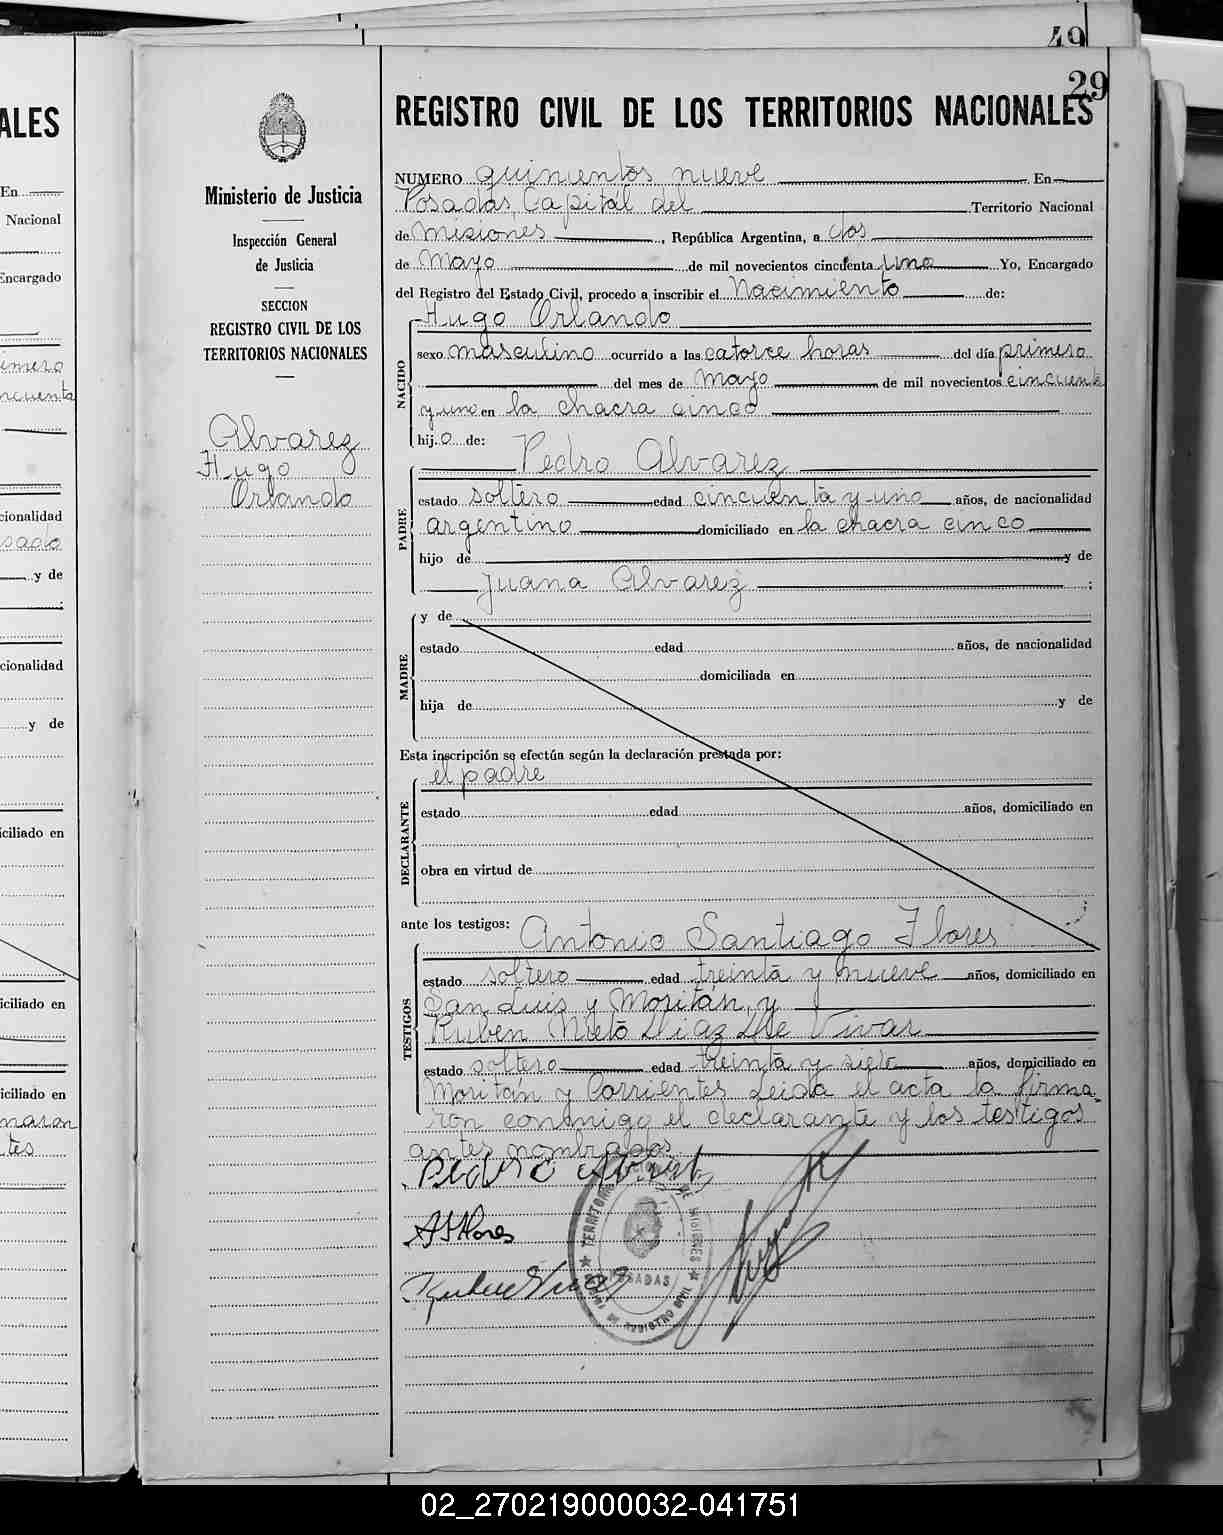 49
29
ALES
En
Nacional
Encargado
imero
ncuenta
cionalidad
y de
cionalidad
y de
iciliado en
iciliado en
iciliado en
maron
tes
Ministerio de Justicia
Inspección General
de Justicia
SECCION
REGISTRO CIVIL DE LOS
TERRITORIOS NACIONALES
Alvarez
Hugo
Orlando
REGISTRO CIVIL DE LOS TERRITORIOS NACIONALES
NUMERO quinientos nueve En
Posadas, Capital del Territorio Nacional
de Misiones, República Argentina, a dos
de Mayo de mil novecientos cincuenta uno Yo, Encargado
del Registro del Estado Civil, procedo a inscribir el Nacimiento de:
Hugo Orlando
NACIDO
sexo masculino ocurrido a las catorce horas del día primero
del mes de Mayo de mil novecientos cincuenta
y uno en la chacra cinco
hijo de:
Pedro Alvarez
PADRE
estado soltero edad cincuenta y uno años, de nacionalidad
argentino domiciliado en la chacra cinco
hijo de y de
Juana Alvarez ;
MADRE
y de
estado edad años, de nacionalidad
domiciliada en
hija de y de
Esta inscripción se efectúa según la declaración prestada por:
el padre
DECLARANTE
estado edad años, domiciliado en
obra en virtud de
ante los testigos: Antonio Santiago Flores
TESTIGOS
estado soltero edad treinta y nueve años, domiciliado en
San Luis y Moritán, y
Ruben Nieto Diaz De Vivar
estado soltero edad treinta y siete años, domiciliado en
Moritán y Corrientes Leida el acta la firma-
ron conmigo el declarante y los testigos
antes nombrados
Pedro Alvarez
A S Flores
TERRITORIO NACIONAL DE MISIONES
POSADAS
REGISTRO CIVIL
02_270219000032-041751